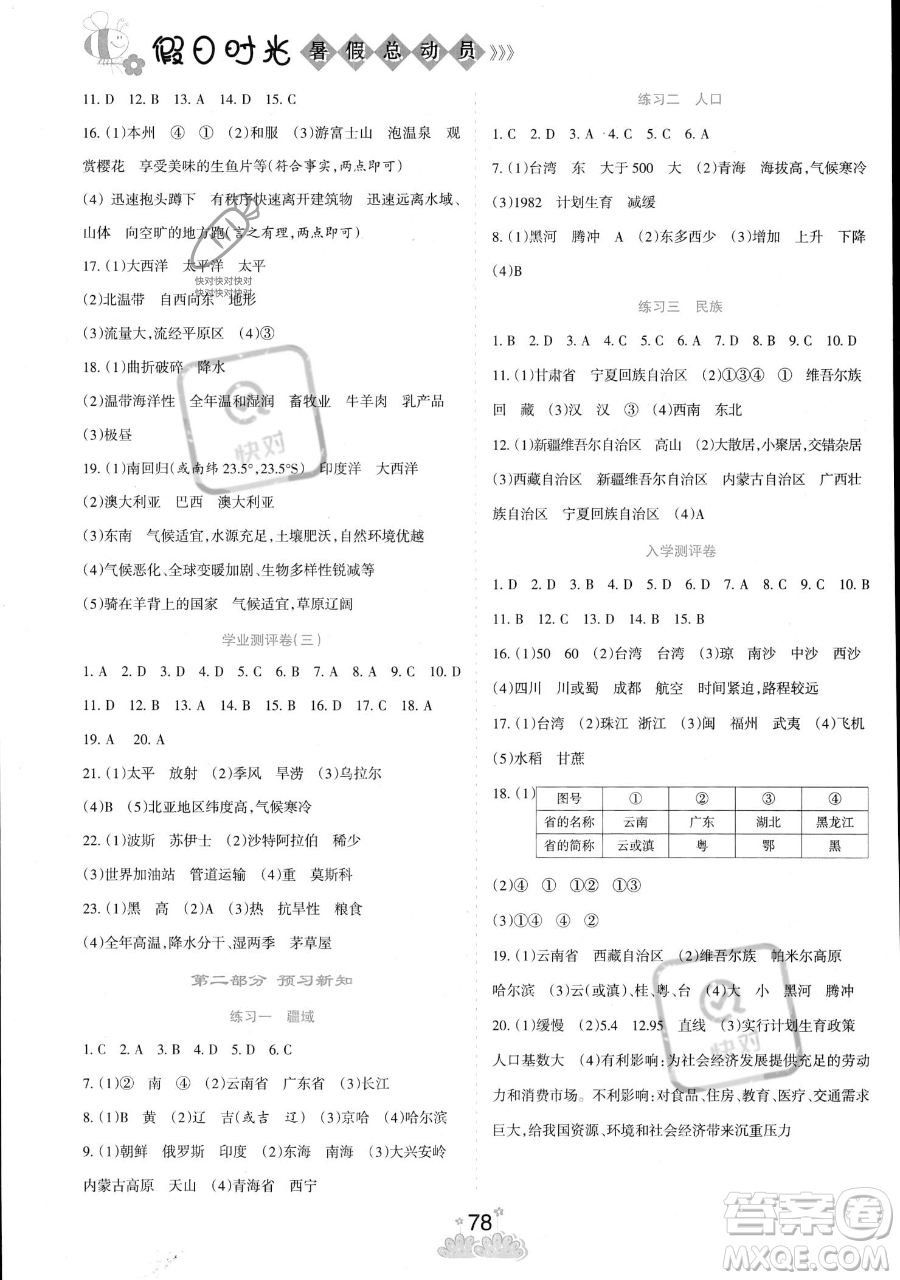 假日时光 暑假总动员
11. D 12. B 13. A 14. D 15. C
16. (1)本州 ④ ① (2)和服 (3)游富士山 泡温泉 观
赏樱花 享受美味的生鱼片等(符合事实,两点即可)
(4) 迅速抱头蹲下 有秩序快速离开建筑物 迅速远离水域、
山体 向空旷的地方跑(言之有理,两点即可)
17. (1)大西洋 太平洋 太平
快对快对快对
快对快对快对
(2)北温带 自西向东 地形
(3)流量大,流经平原区 (4)③
18. (1)曲折破碎 降水
(2)温带海洋性 全年温和湿润 畜牧业 牛羊肉 乳产品
(3)极昼
快对
19. (1)南回归(或南纬 23.5°,23.5°S) 印度洋 大西洋
(2)澳大利亚 巴西 澳大利亚
(3)东南 气候适宜,水源充足、土壤肥沃、自然环境优越
(4)气候恶化、全球变暖加剧、生物多样性锐减等
(5)骑在羊背上的国家 气候适宜,草原辽阔
学业测评卷(三)
1. A 2. D 3. B 4. A 5. A 6. C 7. B 8. C 9. D 10. D
11. D 12. D 13. A 14. B 15. D 16. C 17. B 18. A
19. A 20. A
21. (1)太平 放射 (2)季风 旱涝 (3)乌拉尔
(4)B (5)北亚地区纬度高,气候寒冷
22. (1)波斯 苏伊士 (2)沙特阿拉伯 稀少
(3)世界加油站 管道运输 (4)重 莫斯科
23. (1)黑 高 (2)A (3)热 抗旱性 粮食
(4)全年高温,降水分干、湿两季 茅草屋
第二部分 预习新知
练习一 疆域
1. C 2. A 3. B 4. D 5. D 6. C
7. (1)② 南 ④ (2)云南省 广东省 (3)长江
8. (1)B 黄 (2)辽 吉(或吉 辽) (3)京哈 (4)哈尔滨
9. (1)朝鲜 俄罗斯 印度 (2)东海 南海 (3)大兴安岭
内蒙古高原 天山 (4)青海省 西宁
练习二 人口
1. C 2. D 3. A 4. C 5. C 6. A
7. (1)台湾 东 大于 500 大 (2)青海 海拔高,气候寒冷
(3)1982 计划生育 减缓
8. (1)黑河 腾冲 A (2)东多西少 (3)增加 上升 下降
(4)B
练习三 民族
1. B 2. D 3. A 4. B 5. C 6. A 7. B 8. D 9. B 10. D
11. (1)甘肃省 宁夏回族自治区 (2)①③④ ① 维吾尔族
回 藏 (3)汉 汉 ③ (4)西南 东北
12. (1)新疆维吾尔自治区 高山 (2)大散居,小聚居,交错杂居
(3)西藏自治区 新疆维吾尔自治区 内蒙古自治区 广西壮
族自治区 宁夏回族自治区 (4)A
入学测评卷
1. D 2. D 3. D 4. B 5. D 6. D 7. A 8. C 9. C 10. B
11. B 12. C 13. D 14. A 15. B
16. (1)50 60 (2)台湾 台湾 (3)琼 南沙 中沙 西沙
(4)四川 川或蜀 成都 航空 时间紧迫,路程较远
17. (1)台湾 (2)珠江 浙江 (3)闽 福州 武夷 (4)飞机
(5)水稻 甘蔗
18. (1) 图号 ① ② ③ ④
省的名称 云南 广东 湖北 黑龙江
省的简称 云或滇 粤 鄂 黑
(2)④ ① ①② ①③
(3)①④ ④ ②
19. (1)云南省 西藏自治区 (2)维吾尔族 帕米尔高原
哈尔滨 (3)云(或滇)、桂、粤、台 (4)大 小 黑河 腾冲
20. (1)缓慢 (2)5.4 12.95 直线 (3)实行计划生育政策
人口基数大 (4)有利影响:为社会经济发展提供充足的劳动
快对
力和消费市场。不利影响:对食品、住房、教育、医疗、交通需求
巨大,给我国资源、环境和社会经济带来沉重压力
78
答案卷
MXQE.COM